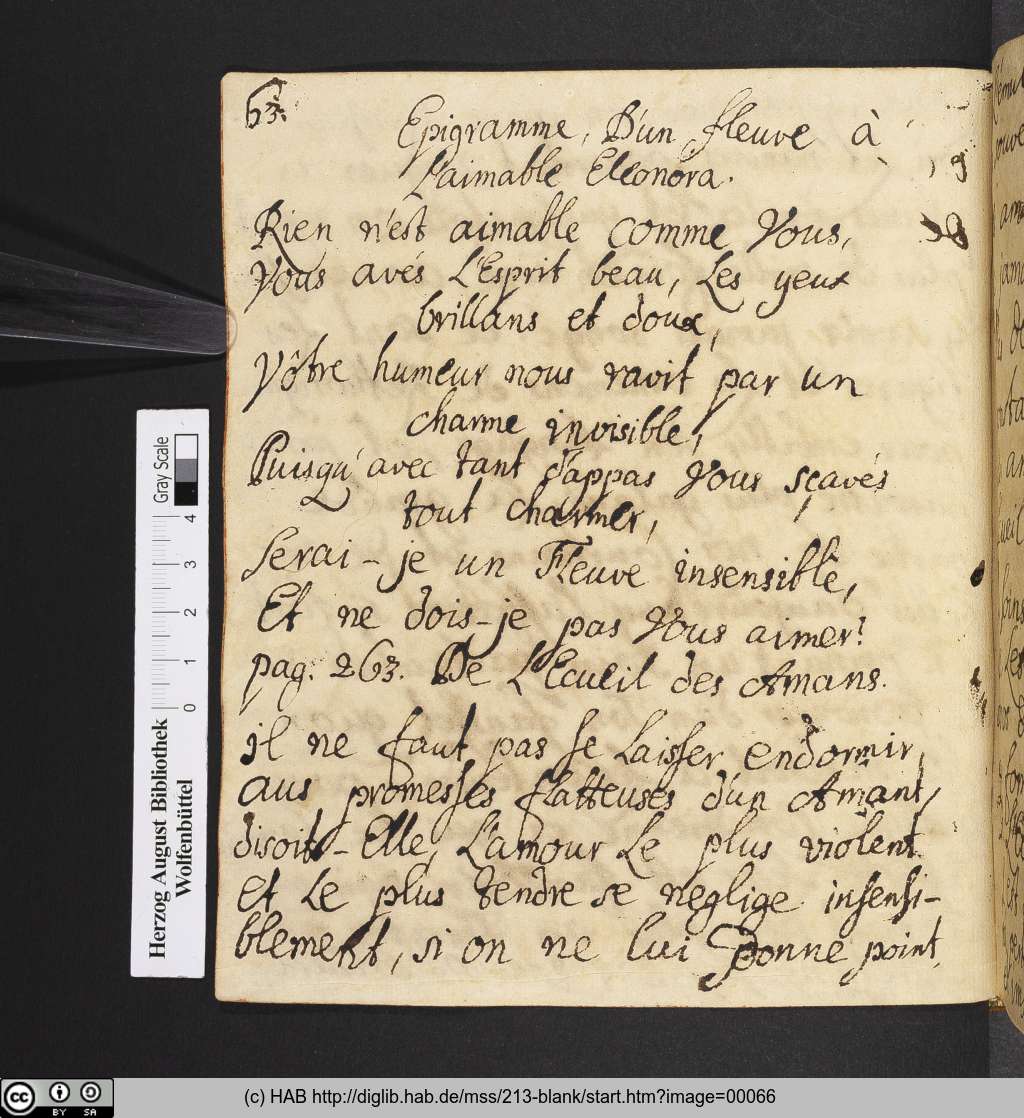 63.
Epigramme, D'un fleuve à
L'aimable Eleonora.
Rien n'est aimable comme Vous,
Vous avés L'Esprit beau, Les yeux
brillans et doux,
Vôtre humeur nous ravit par un
charme invisible,
Puisqu'avec tant d'appas Vous sçavés
tout charmer,
Serai-je un Fleuve insensible,
Et ne dois-je pas Vous aimer?
pag. 263. De L'Ecueil des Amans.
il ne faut pas se Laisser endormir,
aus promesses flatteuses d'un Amant,
disoit-Elle, L'amour Le plus violent
et Le plus tendre se neglige insensi-
blement, si on ne lui Donne point
Gray Scale
4
3
2
1
0
Herzog August Bibliothek
Wolfenbüttel
cc BY SA
(c) HAB http://diglib.hab.de/mss/213-blank/start.htm?image=00066